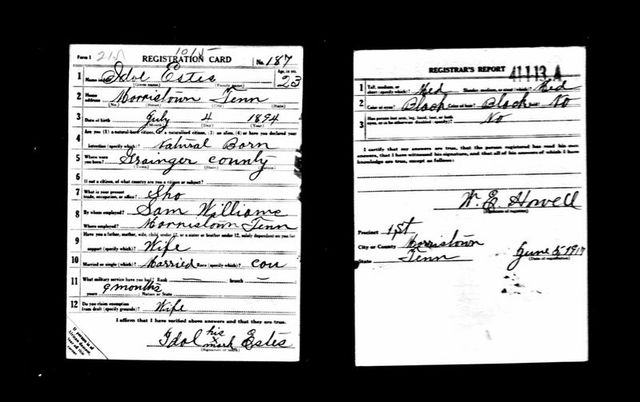 Form 1 REGISTRATION CARD No. 187
1 Name in full Idol Estes Age, in yrs. 23
(Given name) (Family name)
2 Home address Morristown Tenn
(No.) (Street) (City) (State)
3 Date of birth July 4 1894
(Month) (Day) (Year)
4 Are you (1) a natural-born citizen, (2) a naturalized citizen, (3) an alien, (4) or have you declared your
intention (specify which)? Natural Born
5 Where were you born? Grainger County
6 If not a citizen, of what country are you a citizen or subject?
7 What is your present trade, occupation, or office?
8 By whom employed? Sam Williams
Where employed? Morristown Tenn
9 Have you a father, mother, wife, child under 12, or a sister or brother under 12, solely dependent on you for
support (specify which)? Wife
10 Married or single (which)? Married Race (specify which)?
11 What military service have you had? Rank branch
years 9 months Nation or State
12 Do you claim exemption from draft (specify grounds)? Wife
I affirm that I have verified above answers and that they are true.
Idol his x mark Estes
(Signature or mark)
REGISTRAR'S REPORT 41 1 13 A
1 Tall, medium, or short (specify which)? Med Slender, medium, or stout (which)? Med
2 Color of eyes? Black Color of hair? Black Bald? No
3 Has person lost arm, leg, hand, foot, or both eyes, or is he otherwise disabled (specify)? No
I certify that my answers are true, that the person registered has read his own
answers, that I have witnessed his signature, and that all of his answers of which I have
knowledge are true, except as follows:
W. E. Howell
(Signature of registrar)
Precinct 1st
City or County Morristown
State Tenn June 5, 1917
(Date of registration)